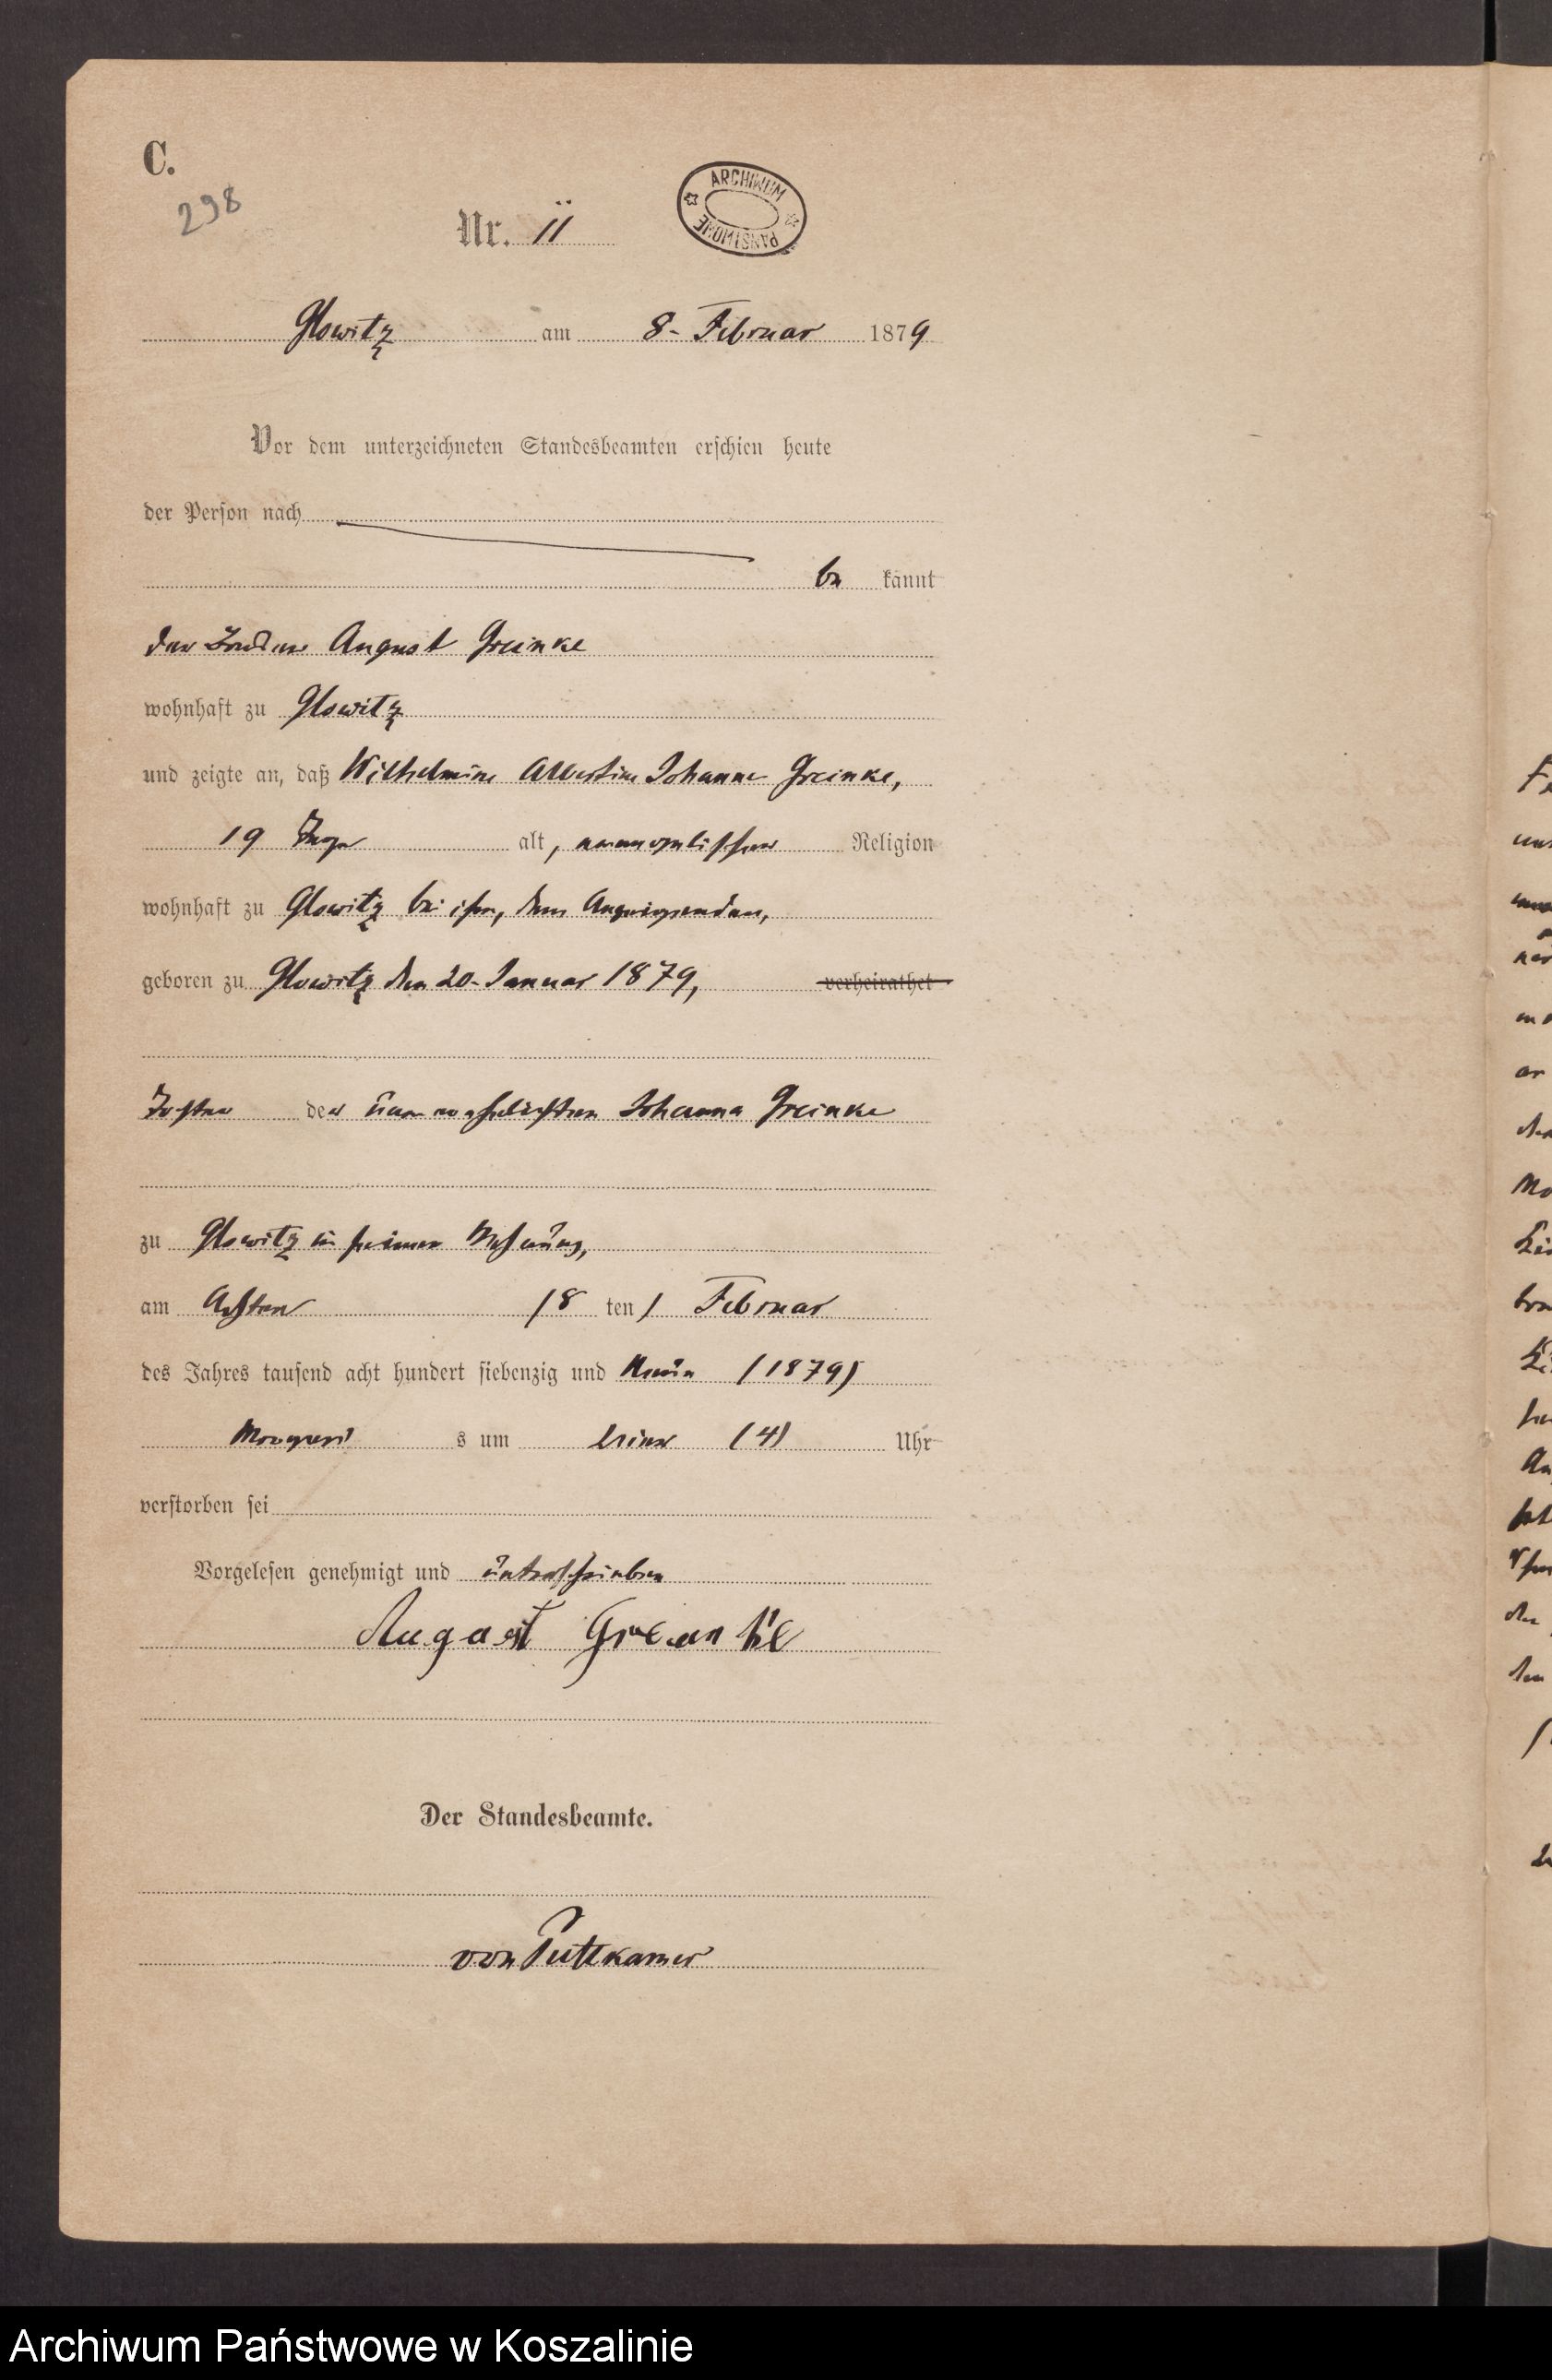 C.
298
Nr. 11
ARCHIWUM PAŃSTWOWE
Glowitz am 8. Februar 1879
Vor dem unterzeichneten Standesbeamten erschien heute
der Person nach
be kannt
der August Greinke
wohnhaft zu Glowitz
und zeigte an, daß Wilhelmine Albertine Johanne Greinke,
19 Tage alt, evangelischer Religion
wohnhaft zu Glowitz bei ihm, dem Anzeigenden,
geboren zu Glowitz den 20. Januar 1879, verheirathet
Tochter der unverehelichten Johanna Greinke
zu Glowitz in seiner Wohnung,
am Achten (8 ten) Februar
des Jahres tausend acht hundert siebenzig und Neun (1879)
Morgens um vier (4) Uhr
verstorben sei
Vorgelesen genehmigt und unterschrieben
August Greinke
Der Standesbeamte.
von Puttkamer
Archiwum Państwowe w Koszalinie